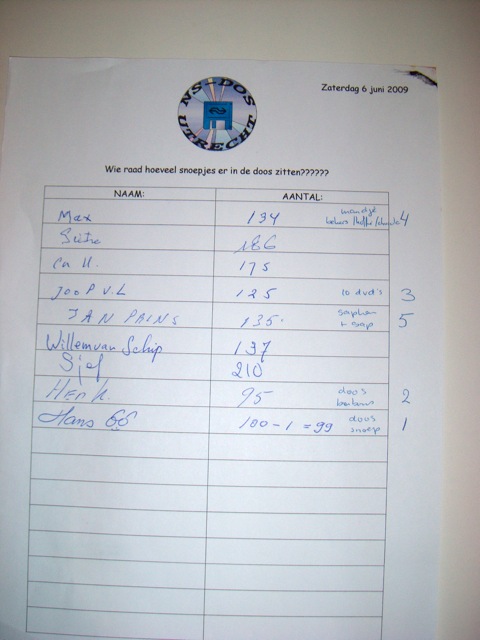 NS-DOS
UTRECHT
Zaterdag 6 juni 2009
Wie raad hoeveel snoepjes er in de doos zitten??????
NAAM: AANTAL:
Max 134 mandje 4
186
175
JOOP V.L 125 10 dvd's 3
JAN PRINS 135. + sap 5
Willem van Schip 137
Sjef 210
HENK 95 doos 2
Hans 68 100-1=99 doos snoep 1